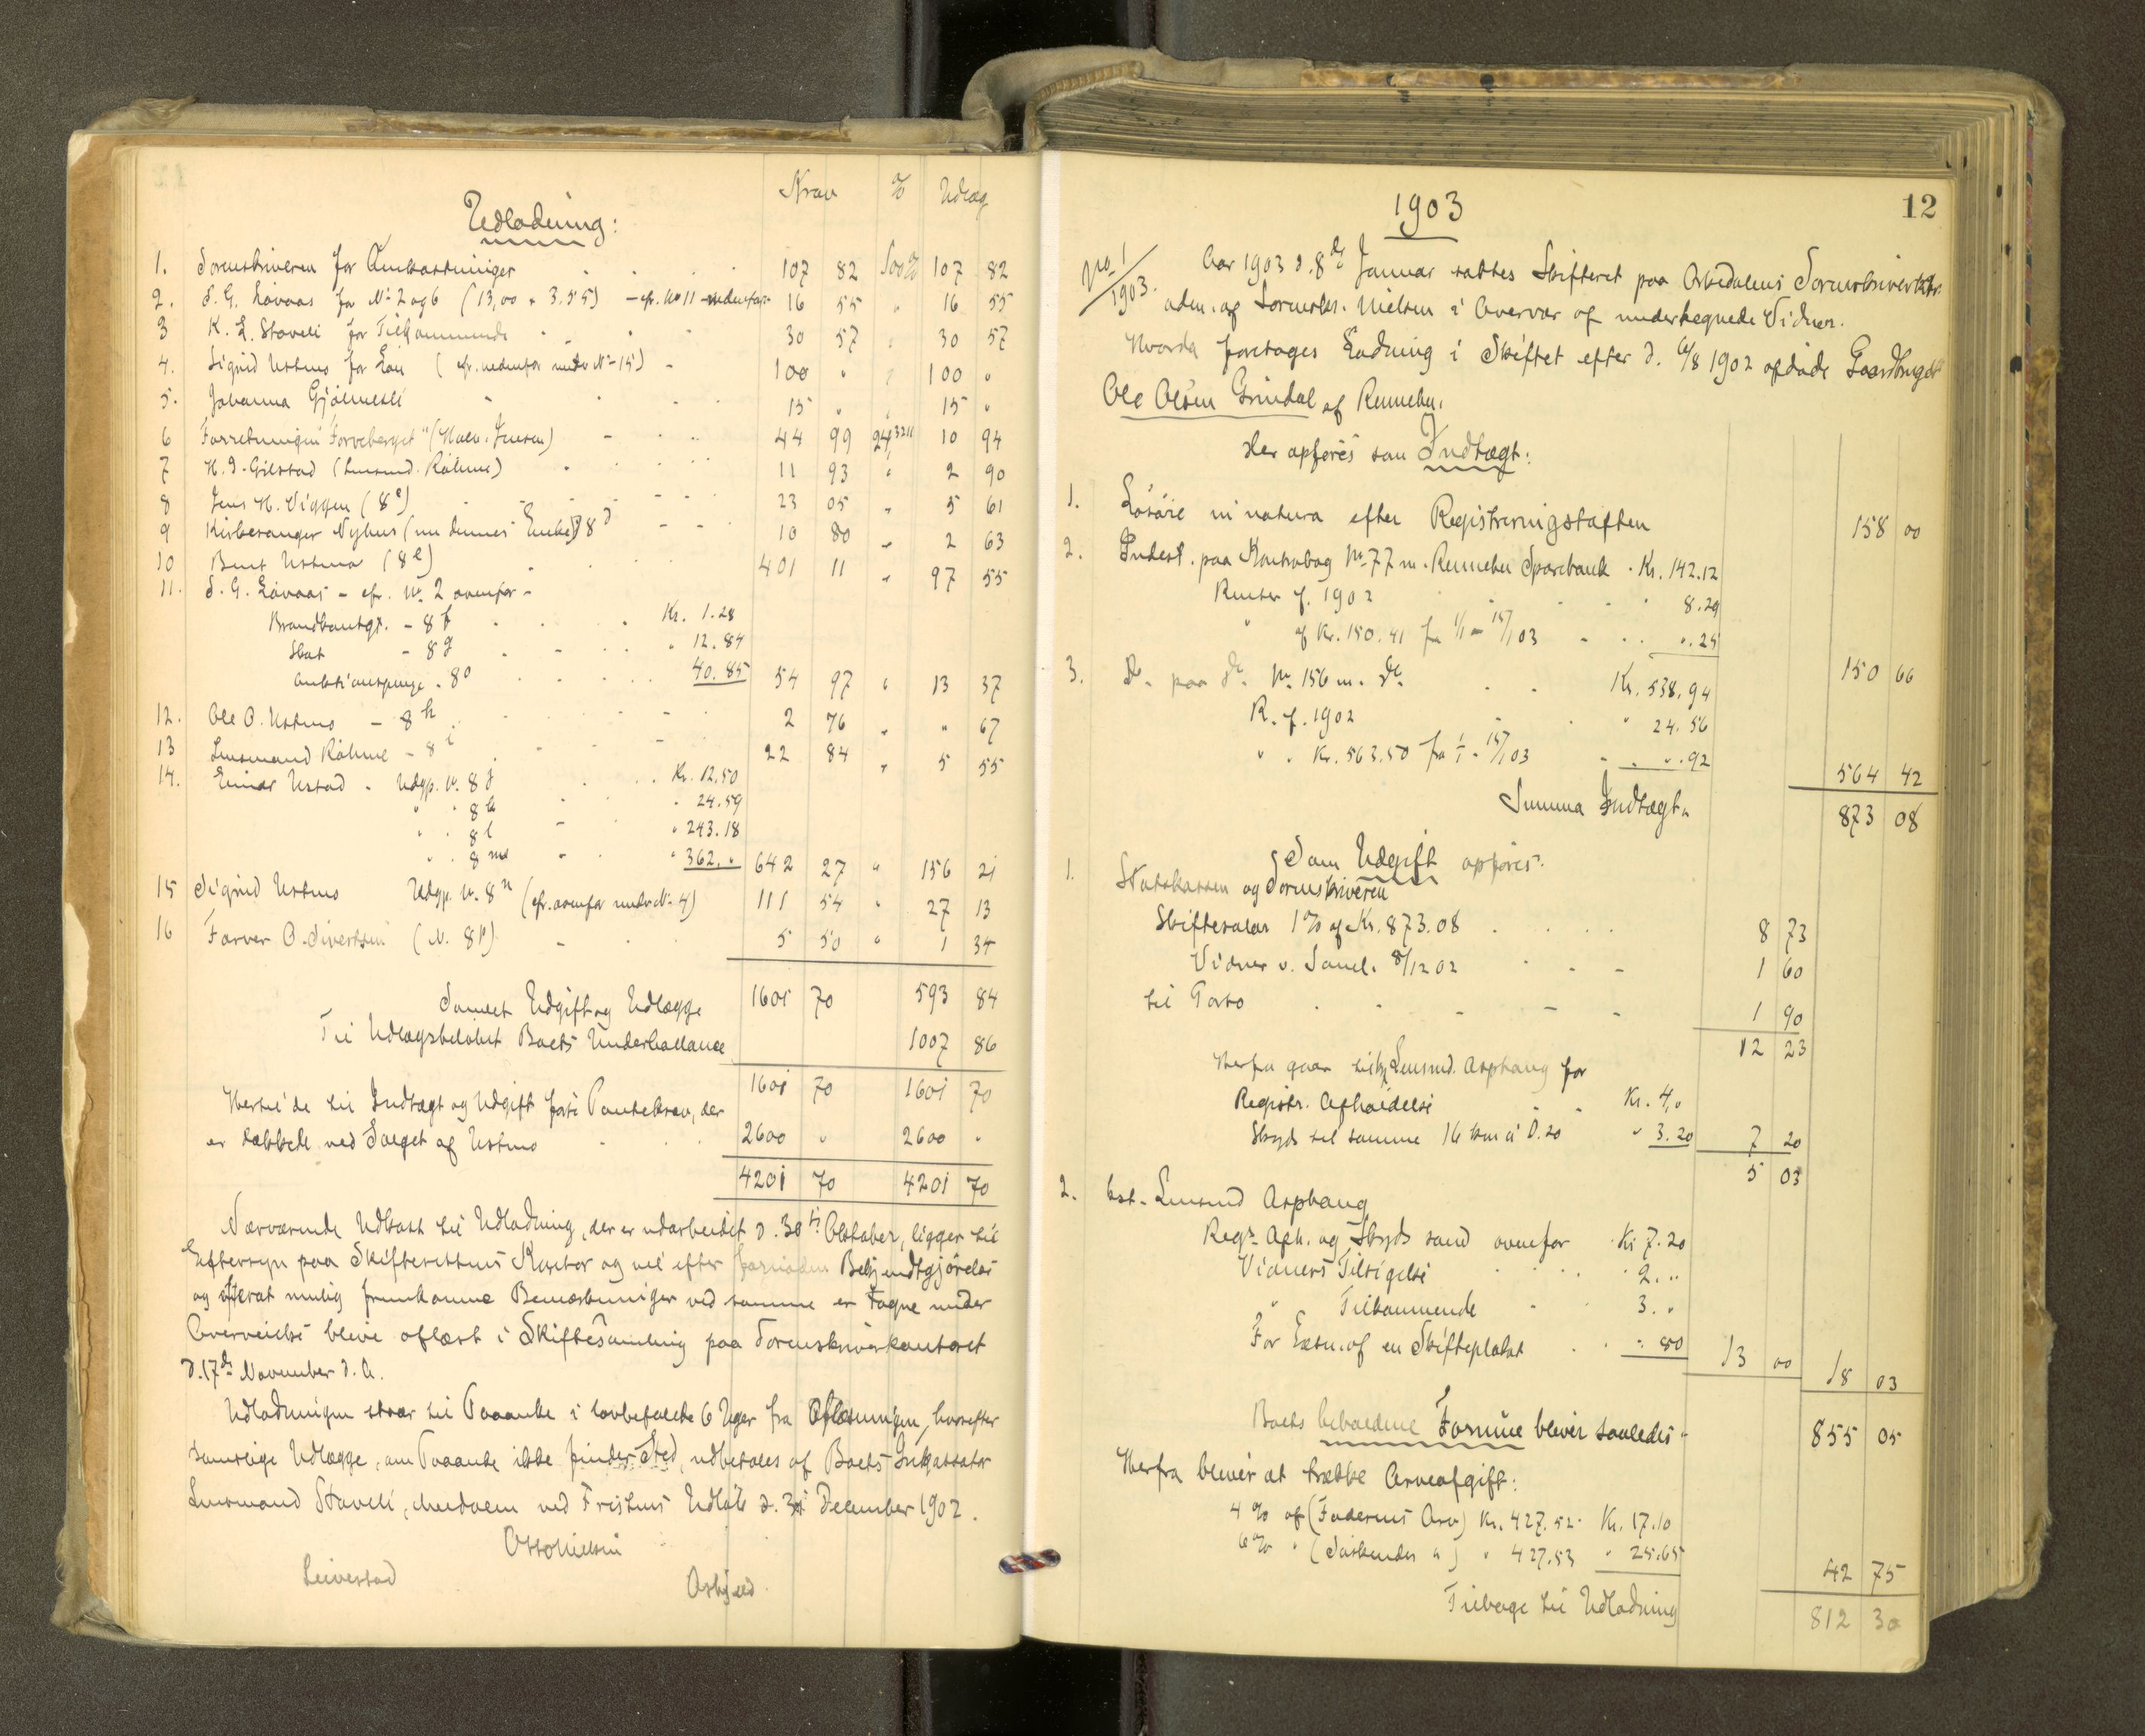 Krav % Udlæg
Udlodning:
1. Sorenskriveren for Omkostninger 107 82 100% 107 82
2. S. G. Løvaas for No 2 og 6 (13,00 + 3.55) - cfr. No 11 nedenfor 16 55 " 16 55
3 K. L. Staveli for Tilkommende 30 57 " 30 57
4. Sigrid Ustmo for Løn (cfr. nedenfor under No 15) - 100 " " 100 "
5. Johanna Gjølmesli 15 " " 15 "
6 Forretningen "Torveberget" (Halv. Jensen) - 44 99 24,3211 10 94
7 H. J. Gilstad (Lensmd. Røhme) 11 93 " 2 90
8 Jens H. Viggen (8c) 23 05 " 5 61
9 Kirkesanger Nyhus (nu dennes Enke) 8d - 10 80 " 2 63
10 Berit Ustmo (8e) 401 11 " 97 55
11. S. G. Løvaas - cfr. No. 2 ovenfor -
Brandkontgt. - 8f Kr. 1.28
Skat - 8g " 12.84
Auktionspenge - 8o 40.85 54 97 " 13 37
12. Ole O. Ustmo - 8h 2 76 " " 67
13 Lensmand Røhme - 8i 22 84 " 5 55
14. Einar Ustad - Udgp. No. 8j Kr. 12.50
" " 8k " 24.59
" " 8l " 243.18
" " 8m " 362. " 642 27 " 156 21
15 Sigrid Ustmo Udgp. No. 8n (cfr. ovenfor under No 4) 111 54 " 27 13
16 Farver O. Sivertsen (No. 8p) 5 50 " 1 34
Samlet Udgift og Udlægge 1601 70 593 84
Til Udlægsbeløbet Boets Underballance 1007 86
1601 70 1601 70
Hertil de til Indtægt og Udgift førte Pantekrav, der
er dækkede ved Salget af Ustmo 2600 " 2600 "
4201 70 4201 70
Nærværende Udkast til Udlodning, der er udarbeidet d. 30te Oktober, ligger til
Eftersyn paa Skifterettens Kontor og vil efter Bekjendtgjørelse
og efterat mulig fremkomne Bemærkninger ved samme er tagne under
Overveielse blive oplæst i Skiftesamling paa Sorenskriverkontoret
d. 17de November d. A.
Udlodningen staar til Paaanke i lovbefalede 6 Uger fra Oplæsningen, hvorefter
samtlige Udlægge, om Paaanke ikke finder Sted, udbetales af Boets Inkassator
Lensmand Staveli, ved Fristens Udløb d. 31 December 1902.
Otto Nielsen
Leivestad Asbj
12
1903
No 1/1903. Aar 1903 d. 8de Januar sattes Skifteret paa Orkedalens Sorenskriverktr.
adm. af Sorenskr. Nielsen i Overvær af undertegnede Vidner.
Hvorda foretages Lodning i Skiftet efter d. 6/8 1902 afdøde Gaardbruger
Ole Olsen Grindal af Rennebu.
Her opføres som Indtægt:
1. Løsøre in natura efter Registreringstaksten 158 00
2. Indest. paa Kontrabog No. 77 m. Rennebu Sparebank - Kr. 142.12
Renter f. 1902 8.29
" af Kr. 150.41 fra 1/1 - 15/1 03 - " .25
150 66
3. Do. paa do. No. 156 m. do. Kr. 538.94
R. f. 1902 " 24.56
" " Kr. 563.50 fra 1/1 - 15/1 03 " " .92
564 42
Summa Indtægt. 873 08
Som Udgift opføres:
1. Statskassen og Sorenskriveren
Skiftesalær 1% af Kr. 873.08 8 73
Vidner v. Saml. 8/12 02 1 60
til Porto 1 90
12 23
Herfra gaar til kst. Lensmd. Asphaug for
Registr. Afholdelse Kr. 4,"
Skyds til samme 16 km à 0.20 " 3.20 7 20
5 03
2. kst. Lensmd Asphaug
Regs. Afh. og Skyds samd ovenfor Kr 7.20
Vidners Tilsigelse 2. "
" Tilkommende 3. "
For Læsn. af en Skifteplakat " .80 13 00 18 03
Boets beholdne Formue bliver saaledes 855 05
Herfra bliver at trække Arveafgift:
4% af (Faderens Arv) Kr. 427.52 Kr. 17.10
6% " (Søskendes ") " 427.53 " 25.65
42 75
Tilbage til Udlodning 812 30